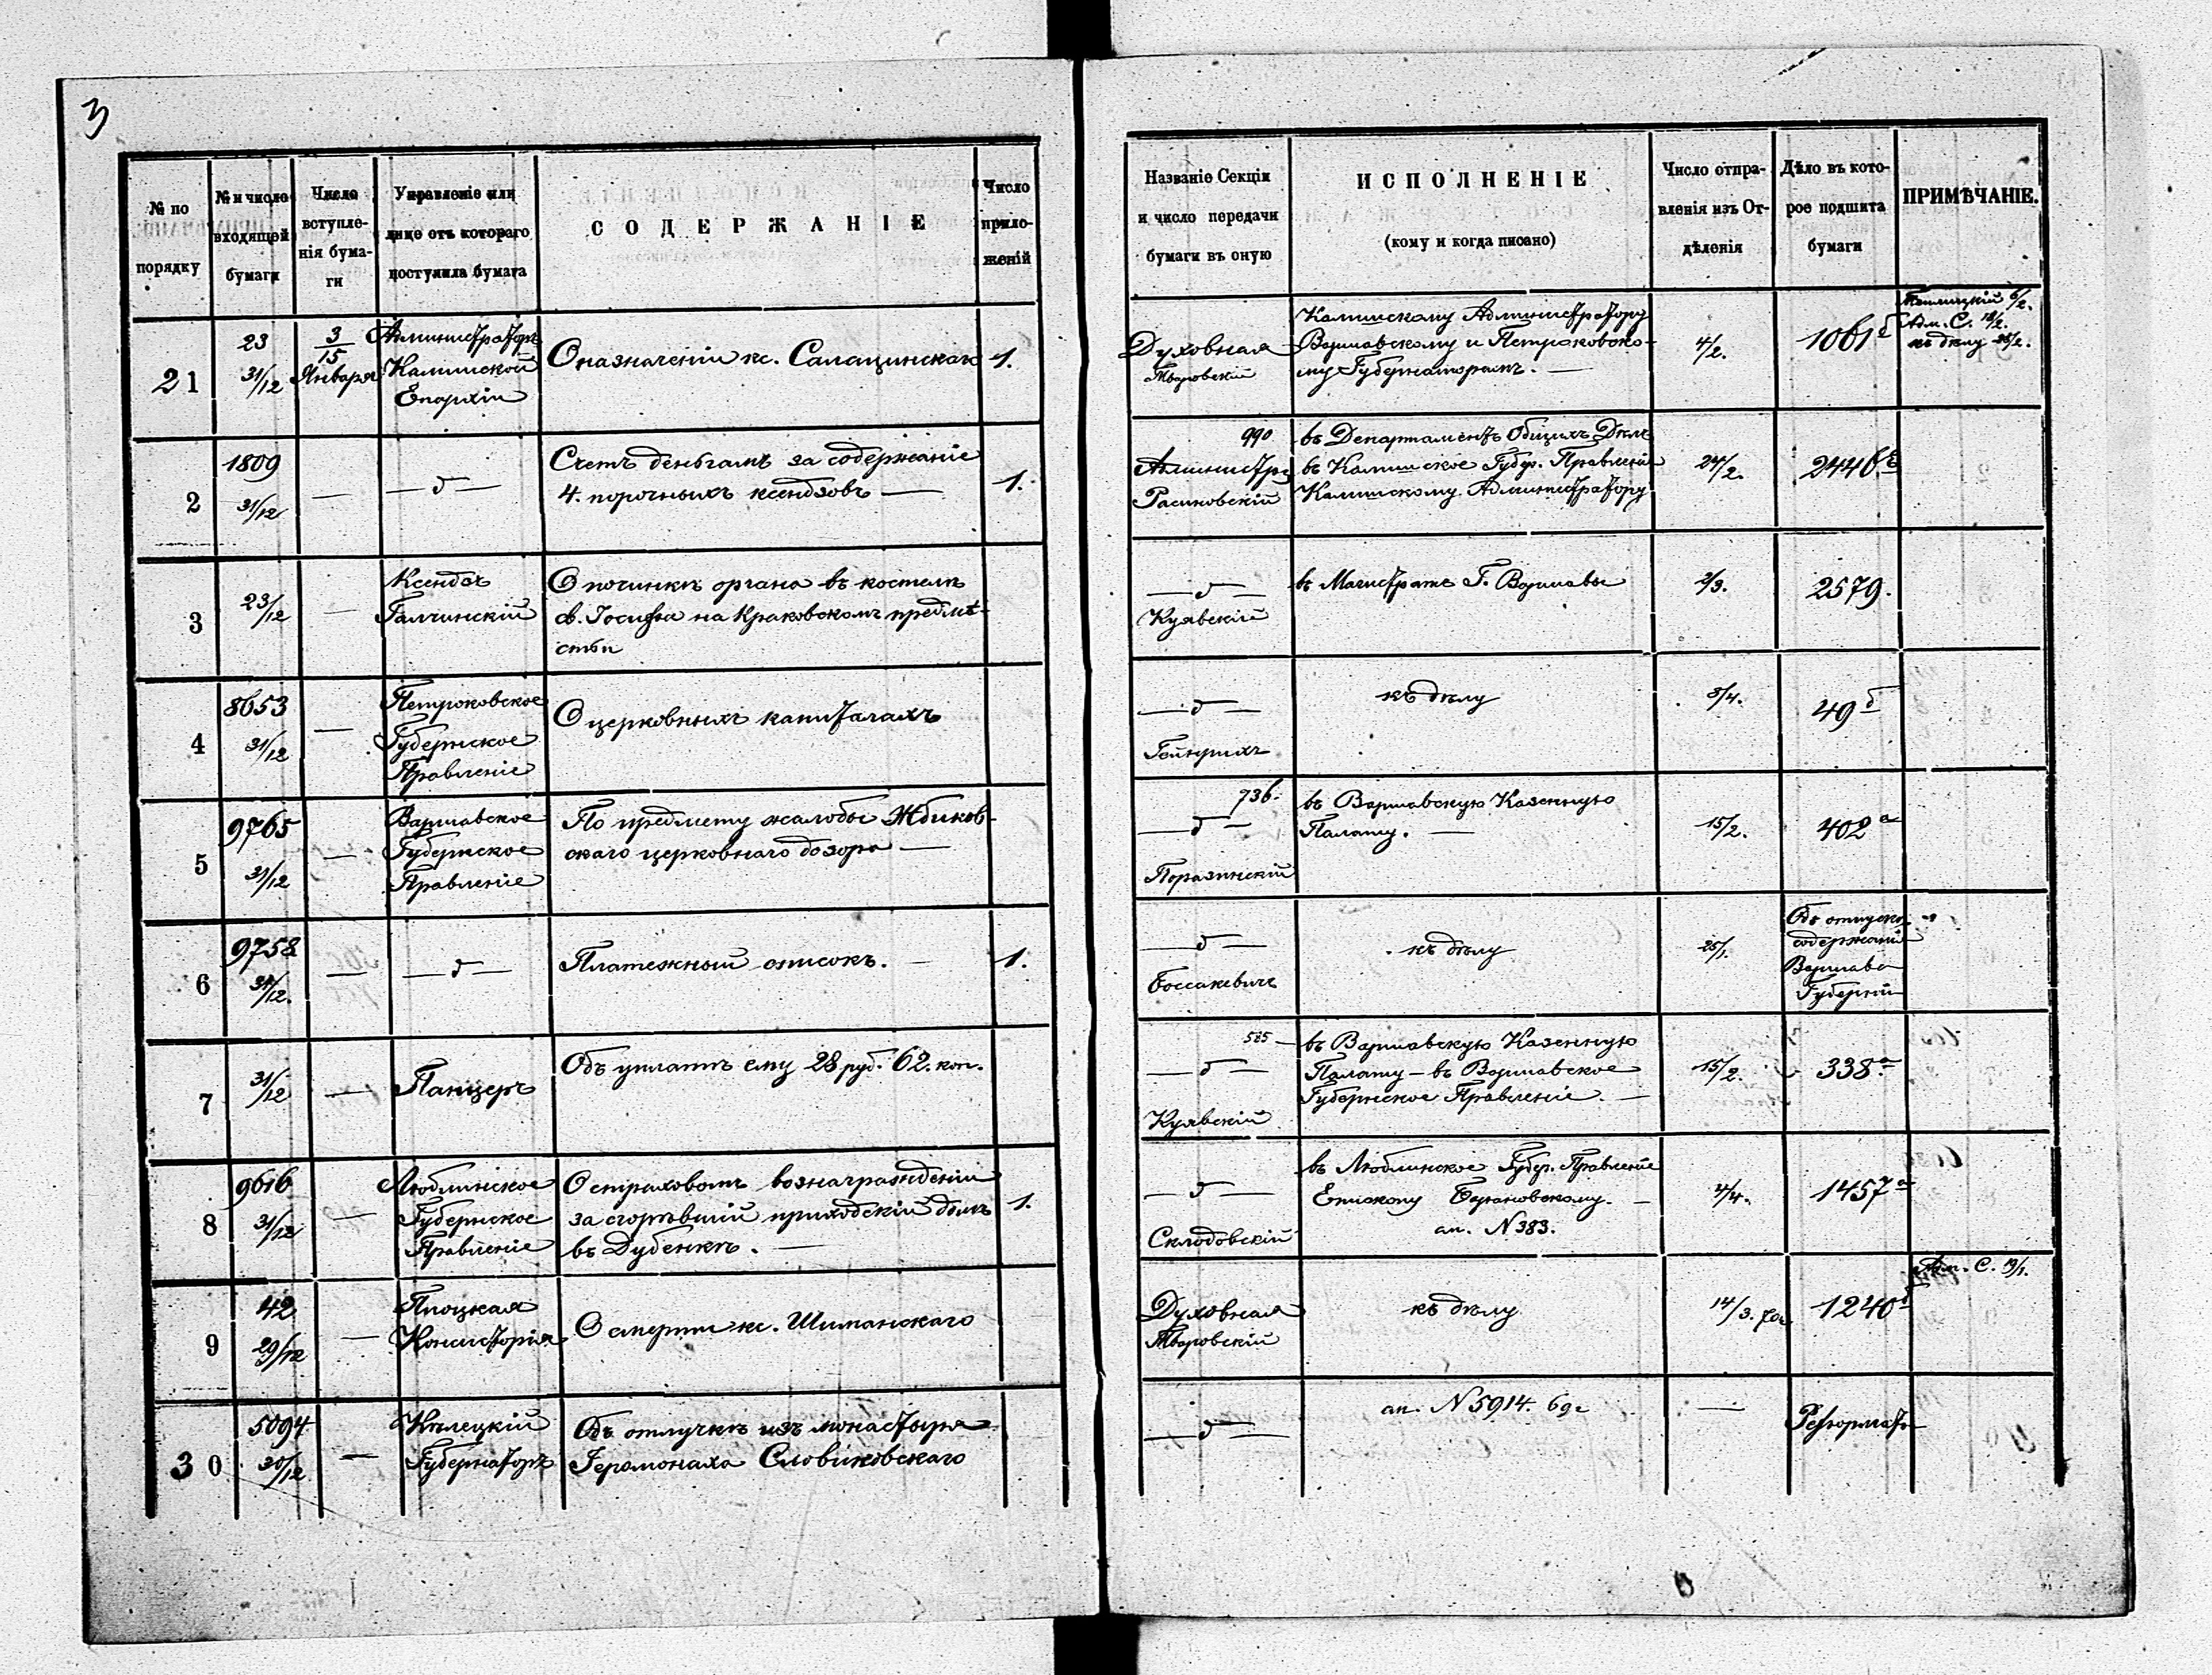 3
№ по порядку
№ и число входящей бумаги
Число вступленія бумаги
Управленіе или лице отъ котораго поступила бумага
СОДЕРЖАНІЕ
Число приложеній
Названіе Секціи и число передачи бумаги въ оную
ИСПОЛНЕНІЕ
(кому и когда писано)
Число отправленія изъ Отдѣленія
Дѣло въ которое подшита бумаги
ПРИМѢЧАНІЕ.
21
23
31/12
3/15
Января
Администраторъ
Калишской
Епархіи
О назначеніи кс. Салацинскаго
1.
Духовная
Тваровскій
Калишскому Администратору
Варшавскому и Петроковско-
му Губернаторамъ.
4/2.
1061 б
6/2.
Адм. С. 18/2.
къ дѣлу 25/2.
2
1809
31/12
—
— д —
Счетъ деньгамъ за содержаніе
4. порочныхъ ксендзовъ —
1.
990
Администр
Расиновскій
въ Департаментъ Общихъ Дѣлъ
въ Калишское Губер. Правленіе
Калишскому Администратору
24/2.
2446
3
23/12
—
Ксендзъ
Галчинскій
О починкѣ органа въ костелѣ
св. Іосифа на Краковскомъ предмѣ-
стьи
— д —
Куявскій
въ Магистратъ Г. Варшавы
2/3.
2579.
4
8653
31/12
—
Петроковское
Губернское
Правленіе
О церковныхъ капиталахъ
— д —
Гейнрихъ
къ дѣлу
8/4.
49 б
5
9765
31/12
—
Варшавское
Губернское
Правленіе
По предмету жалобы Жбиков-
скаго церковнаго дозора —
736.
— д —
Поразинскій
въ Варшавскую Казенную
Палату. —
15/2.
402 а
6
9758
31/12.
—
— д —
Платежный списокъ. —
1.
— д —
Боссакевичъ
къ дѣлу
25/1.
Объ отпуске
содержанія
Варшавс
Губерніи
7
31/12
—
Панцеръ
Объ уплатѣ ему 28 руб. 62. коп.
585
— д —
Куявскій
въ Варшавскую Казенную
Палату — въ Варшавское
Губернское Правленіе. —
15/2.
338 а
8
9616
31/12
—
Люблинское
Губернское
Правленіе
О страховомъ вознагражденіи
за сгорѣвшій приходскій домъ
въ Дубенкѣ. —
1.
— д —
Склодовскій
въ Люблинское Губер. Правленіе
Епископу Барановскому. —
ап. N 383.
4/4.
1457 а
9
42
29/12
—
Плоцкая
Консисторія
О смерти кс. Шиманскаго
Духовная
Тваровскій
къ дѣлу
14/3. 70г.
1240
Адм. С. 19/1.
30
5094
30/12
—
Кѣлецкій
Губернаторъ
Объ отлучкѣ изъ монастыря
Іеромонаха Словиковскаго
— д —
ап. N 5914. 69г
—
Реформаты